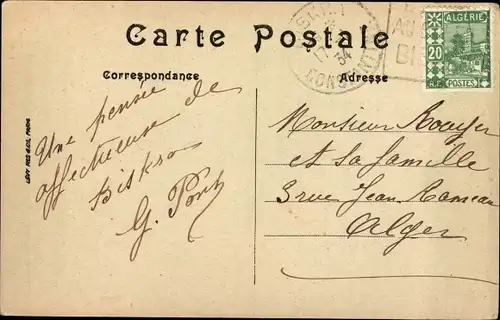 Carte Postale
Correspondance
Adresse
ALGÉRIE
20
R.F. POSTES
34
CONSTANTINE
AU
BI
LÉVY FILS & CIE, PARIS
Une pensée
affectueuse de
Biskra
G. Pons
Monsieur Rouyer
et sa famille
3 rue Jean Rameau
Alger